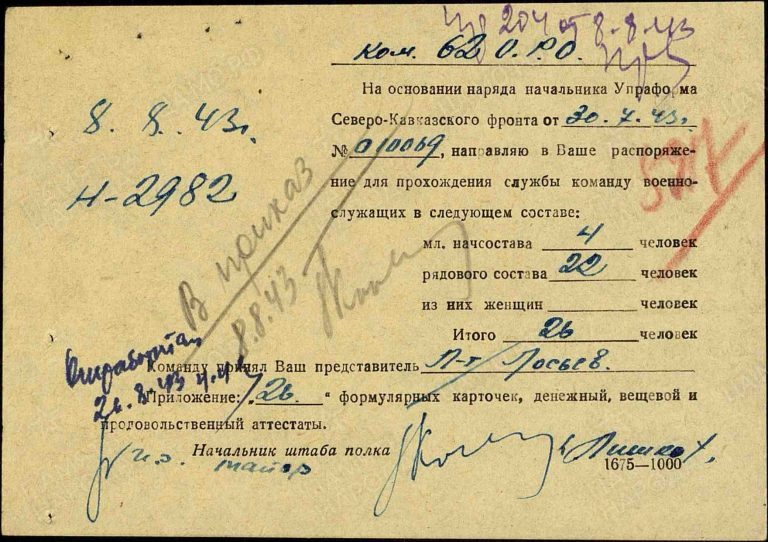 204 от 8-8-43
Ком. 62 О.Р.О.
8. 8. 43г.
Н-2982
На основании наряда начальника Упраформа
Северо-Кавказского фронта от 30.7.43г.
№ 010069, направляю в Ваше распоряже-
ние для прохождения службы команду военно-
служащих в следующем составе:
мл. начсостава 4 человек
рядового состава 22 человек
из них женщин человек
Итого 26 человек
В приказ
8.8.43
Команду принял Ваш представитель Л-т
26.8.43
Приложение: „26" формулярных карточек, денежный, вещевой и
продовольственный аттестаты.
Начальник штаба полка
майор
1675—1000